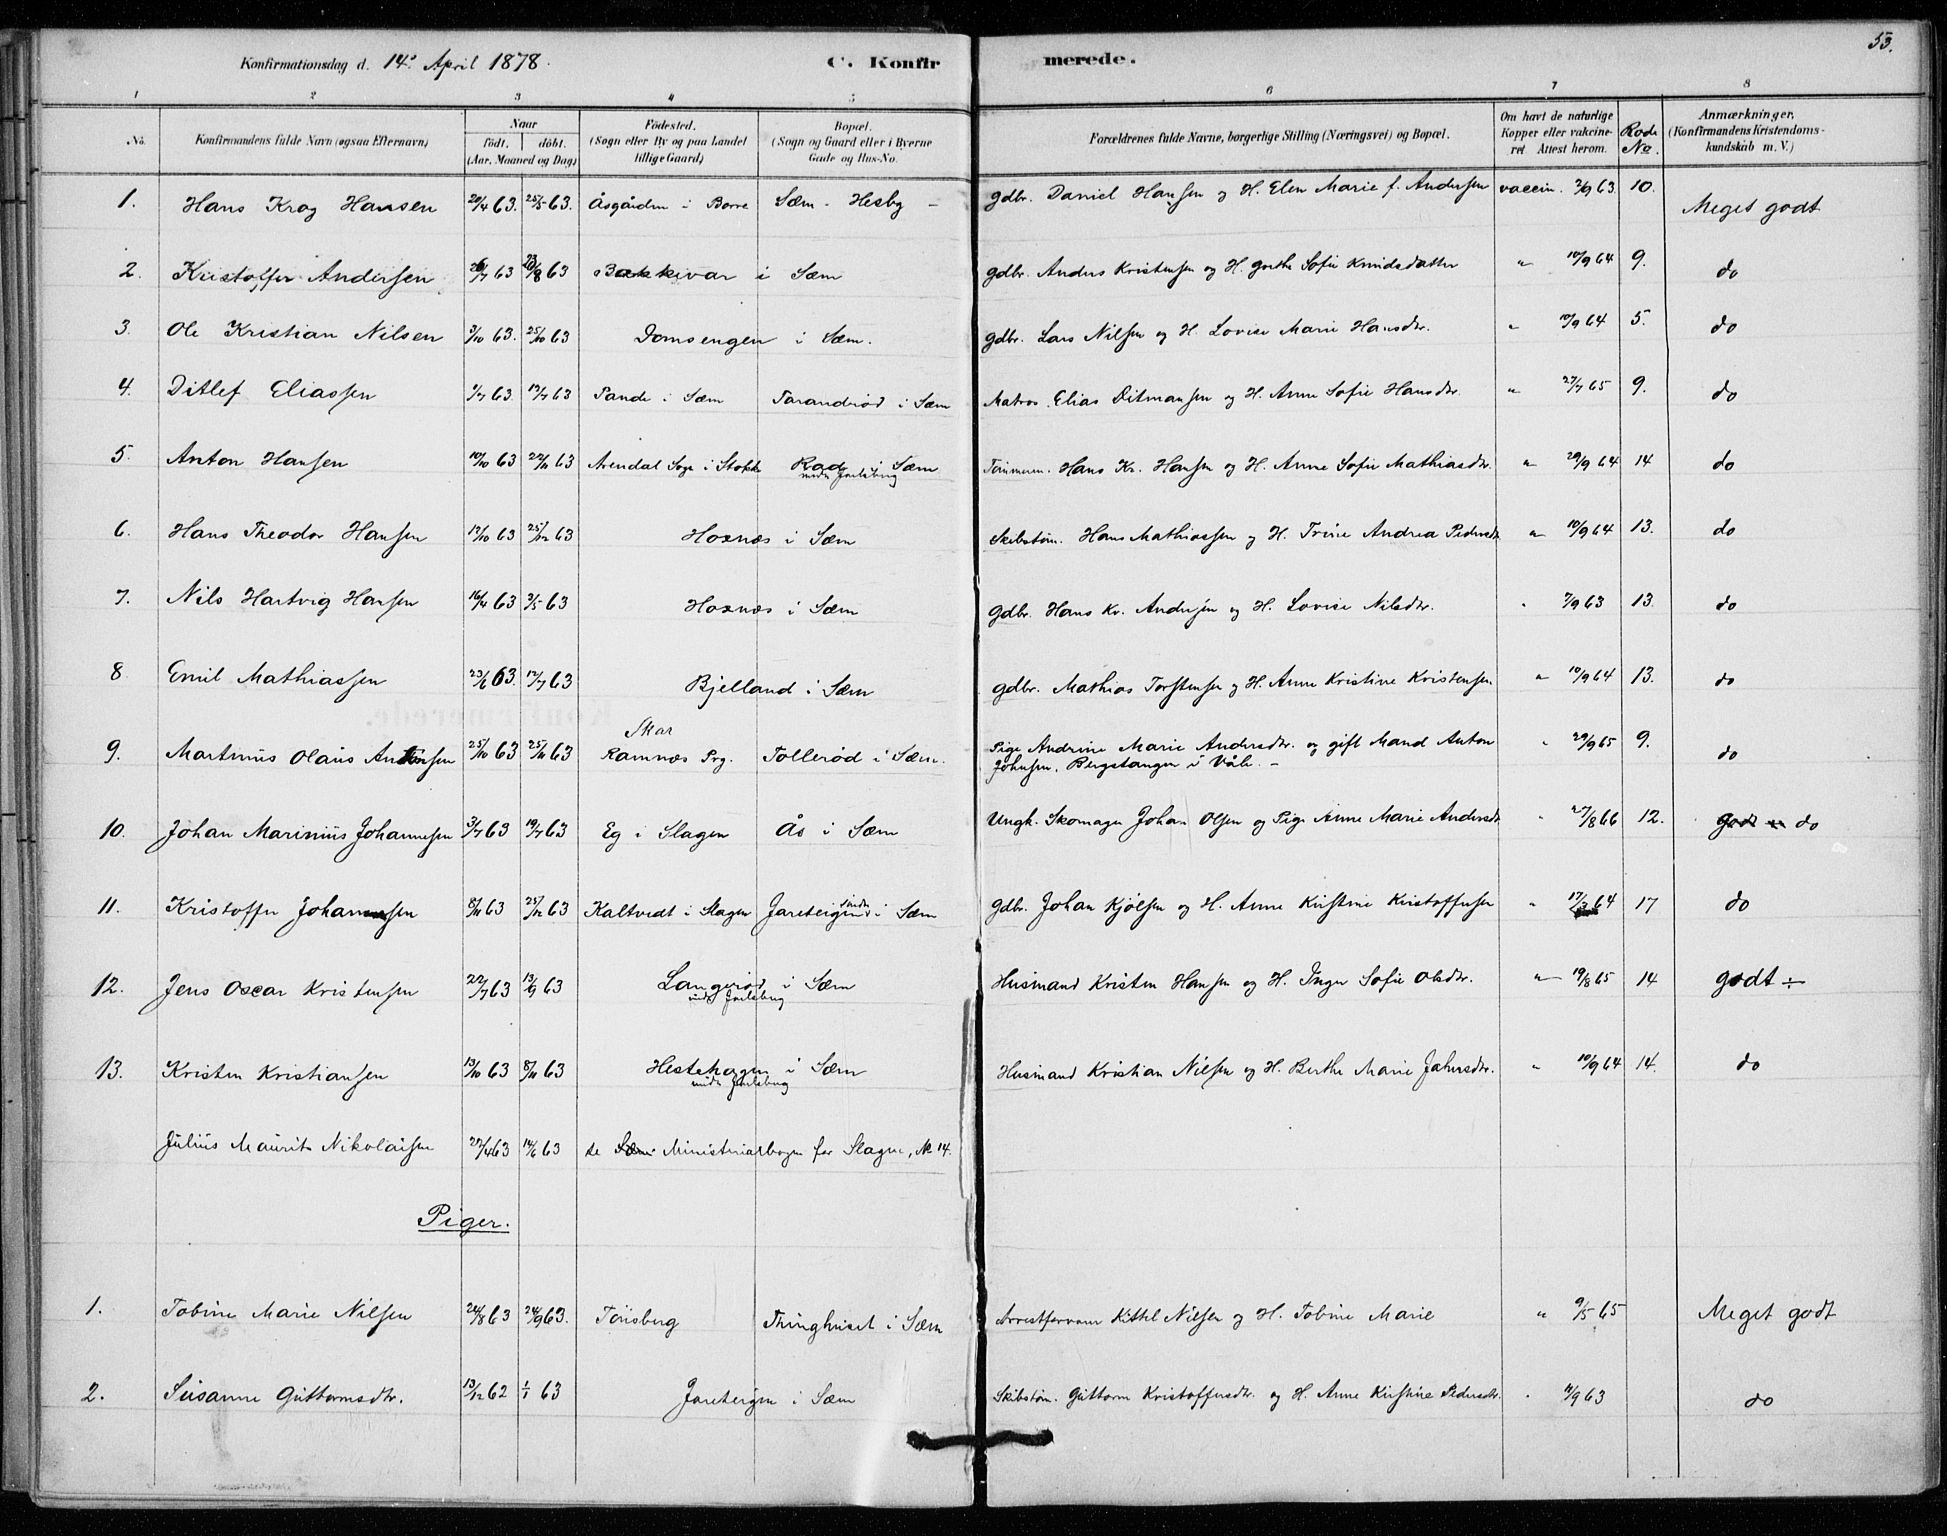 53.
Konfirmationsdag d. 14de April 1878. C. Konfir merede.
1 2 3 4 5 6 7 8
No. Konfirmandens fulde Navn (ogsaa Efternavn) Naar født. døbt. (Aar, Maaned og Dag) Fødested. (Sogn eller By og paa Landet tillige Gaard) Bopæl. (Sogn og Gaard eller i Byerne Gade og Hus-No. Forældrenes fulde Navne, borgerlige Stilling (Næringsvei) og Bopæl. Om havt de naturlige Kopper eller vakcineret Attest herom. Rode No. Anmærkninger. (Konfirmandens Kristendomskundskab m. V.)
1. Hans Krog Hansen 20/4 63. 25/5 63. Åsgården i Borre Sæm - Hesby - gdbr. Daniel Hansen og H. Elen Marie f. Andersen vaccin. 7/9 63 10. Meget godt
2. Kristoffer Andersen 26/7 63 23/8 63 Bækkevar i Sæm gdbr. Anders Kristensen og H. Grethe Sofie Knudsdatter " 10/9 64 9. do
3. Ole Kristian Nilsen 3/10 63. 25/10 63 Domsengen i Sæm. gdbr. Lars Nilsen og H. Lovise Marie Hansdtr. " 10/9 64 5. do
4. Ditlef Eliassen 9/7 63 19/7 63 Pande i Sæm Tarandrød i Sæm Matros. Elias Ditmansen og H. Anne Sofie Hansdtr. " 27/7 65 9. do
5. Anton Hansen 10/10 63 22/11 63 Arendal Sogn i Stokke Rød i Sæm under Jarlsberg Tømmerm. Hans Kr. Hansen og H. Anne Sofie Mathiasdtr. " 29/9 64 14 do
6. Hans Theodor Hansen 17/10 63 25/12 63 Hoxnæs i Sæm Skibstøm. Hans Mathiassen og H. Trine Andrea Pedersdtr " 10/9 64 13. do
7. Nils Hartvig Hansen 16/4 63 3/5 63 Hoxnæs i Sæm gdbr. Hans Kr. Andersen og H. Lovise Nilsdtr. " 7/9 63 13. do
8 Emil Mathiassen 23/6 63. 12/7 63 Bjelland i Sæm gdbr. Mathias Torstensen og H. Anne Kristine Kristensen " 10/9 64 13. do
9. Martinius Olaus Antonsen 25/10 63 25/11 63 Skar Ramnæs Prg. Tollerød i Sæm. Pige Andrine Marie Andersdtr. og gift Mand Anton Johnsen, Bergstangen i Våle. - " 29/9 65 9. do
10. Johan Marinius Johannesen 3/7 63 19/7 63 Eg i Slagen Ås i Sæm Ungk. Skomager Johan Olsen og Pige Anne Marie Andersdtr " 27/8 66 12. do
11. Kristoffer Johannsen 8/11 63 25/12 63 Kaltvedt i Slagen Jareteigen i Sæm gdbr. Johan Kjølsen og H. Anne Kirstine Kristoffersen " 17/3 64 17 do
12. Jens Oscar Kristensen 22/7 63 13/9 63 Langerød i Sæm under Jarlsberg Husmand Kristen Hansen og H. Inger Sofie Olsdtr. " 19/8 65 14 godt ÷
13. Kristen Kristiansen 13/10 63 8/11 63 Hestehagen i Sæm under Jarlsberg Husmand Kristian Nilsen og H. Berthe Marie Jahersdtr. " 10/9 64 14. do
Julius Maurits Nikolaisen 27/4 63 14/6 63 se Ministerialbogen for Slagen, No 14.
Piger.
1. Tobine Marie Nilsen 24/8 63 24/9 63. Tønsberg Thinghuset i Sæm Arrestforvarer Kittel Nilsen og H. Tobine Marie " 9/5 65 Meget godt
2. Susanne Guttormsdtr. 13/12 62 1/1 63 Jareteigen i Sæm Skibstøm. Guttorm Kristoffersdtr. og H. Anne Kirstine Pedersdtr. " 11/9 63 do